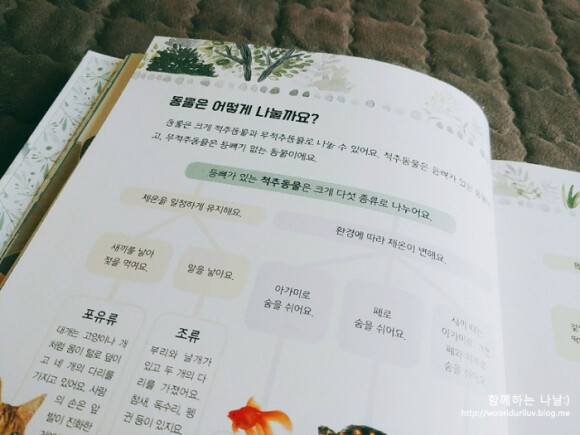 동물은 어떻게 나눌까요?
동물은 크게 척추동물과 무척추동물로 나눌 수 있어요. 척추동물은 등뼈가 있는
고, 무척추동물은 등뼈가 없는 동물이에요.
등뼈가 있는 척추동물은 크게 다섯 종류로 나누어요.
체온을 일정하게 유지해요.
환경에 따라 체온이 변해요.
새끼를 낳아
젖을 먹여요.
알을 낳아요.
아가미로
숨을 쉬어요.
폐로
숨을 쉬어요.
새끼 때는
아가미로,
포유류
대개는 고양이나 개
처럼 몸이 털로 덮이
고 네 개의 다리를
가지고 있어요. 사람
의 손은 앞
발이 진화한
조류
부리와 날개가
있고 두 개의 다
리를 가졌어요.
참새, 독수리, 펭
귄 등이 있지요
함께하는 나날:)
http://wooriduriluv.blog.me